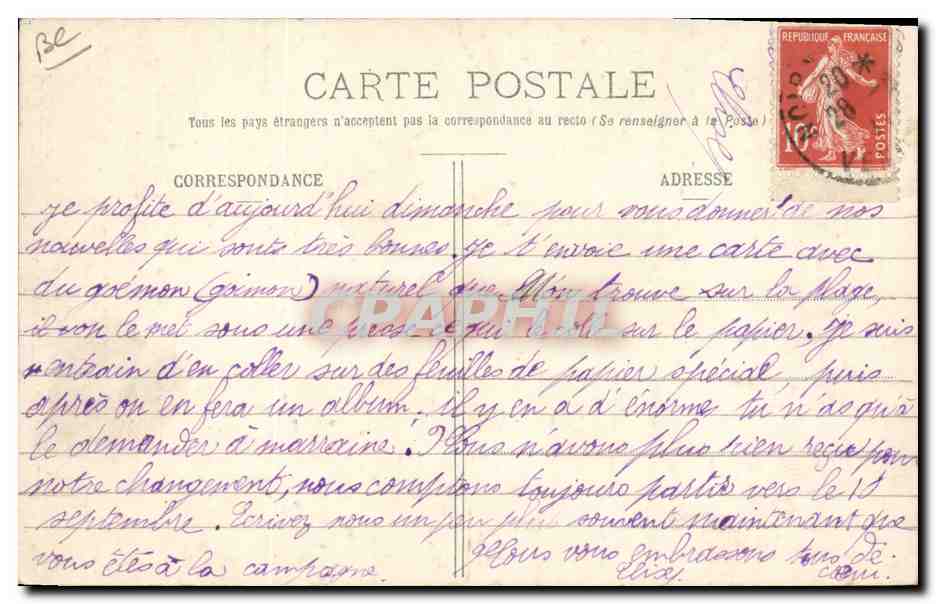 Be
CARTE POSTALE
Tous les pays étrangers n'acceptent pas la correspondance au recto (Se renseigner à la Poste)
REPUBLIQUE FRANÇAISE
10c
POSTES
20 *
28
CORRESPONDANCE
ADRESSE
je profite d'aujourd'hui dimanche pour vous donner de nos
nouvelles qui sonts très bonnes. Je t'envoie une carte avec
du goémon (goimon) naturel que l'on trouve sur la plage
on le met sous une presse ce qui le colle sur le papier. Je suis
entrain d'en coller sur des feuilles de papier spécial, puis
après on en fera un album. il y en a d'énorme tu n'as qu'à
le demander à marraine! Nous n'avons plus rien reçu pour
notre changement, nous comptons toujours partir vers le 18
septembre. Ecrivez nous un peu plus souvent maintenant que
vous êtes à la campagne.
Nous vous embrassons tous de
coeur.
CPAPHIL